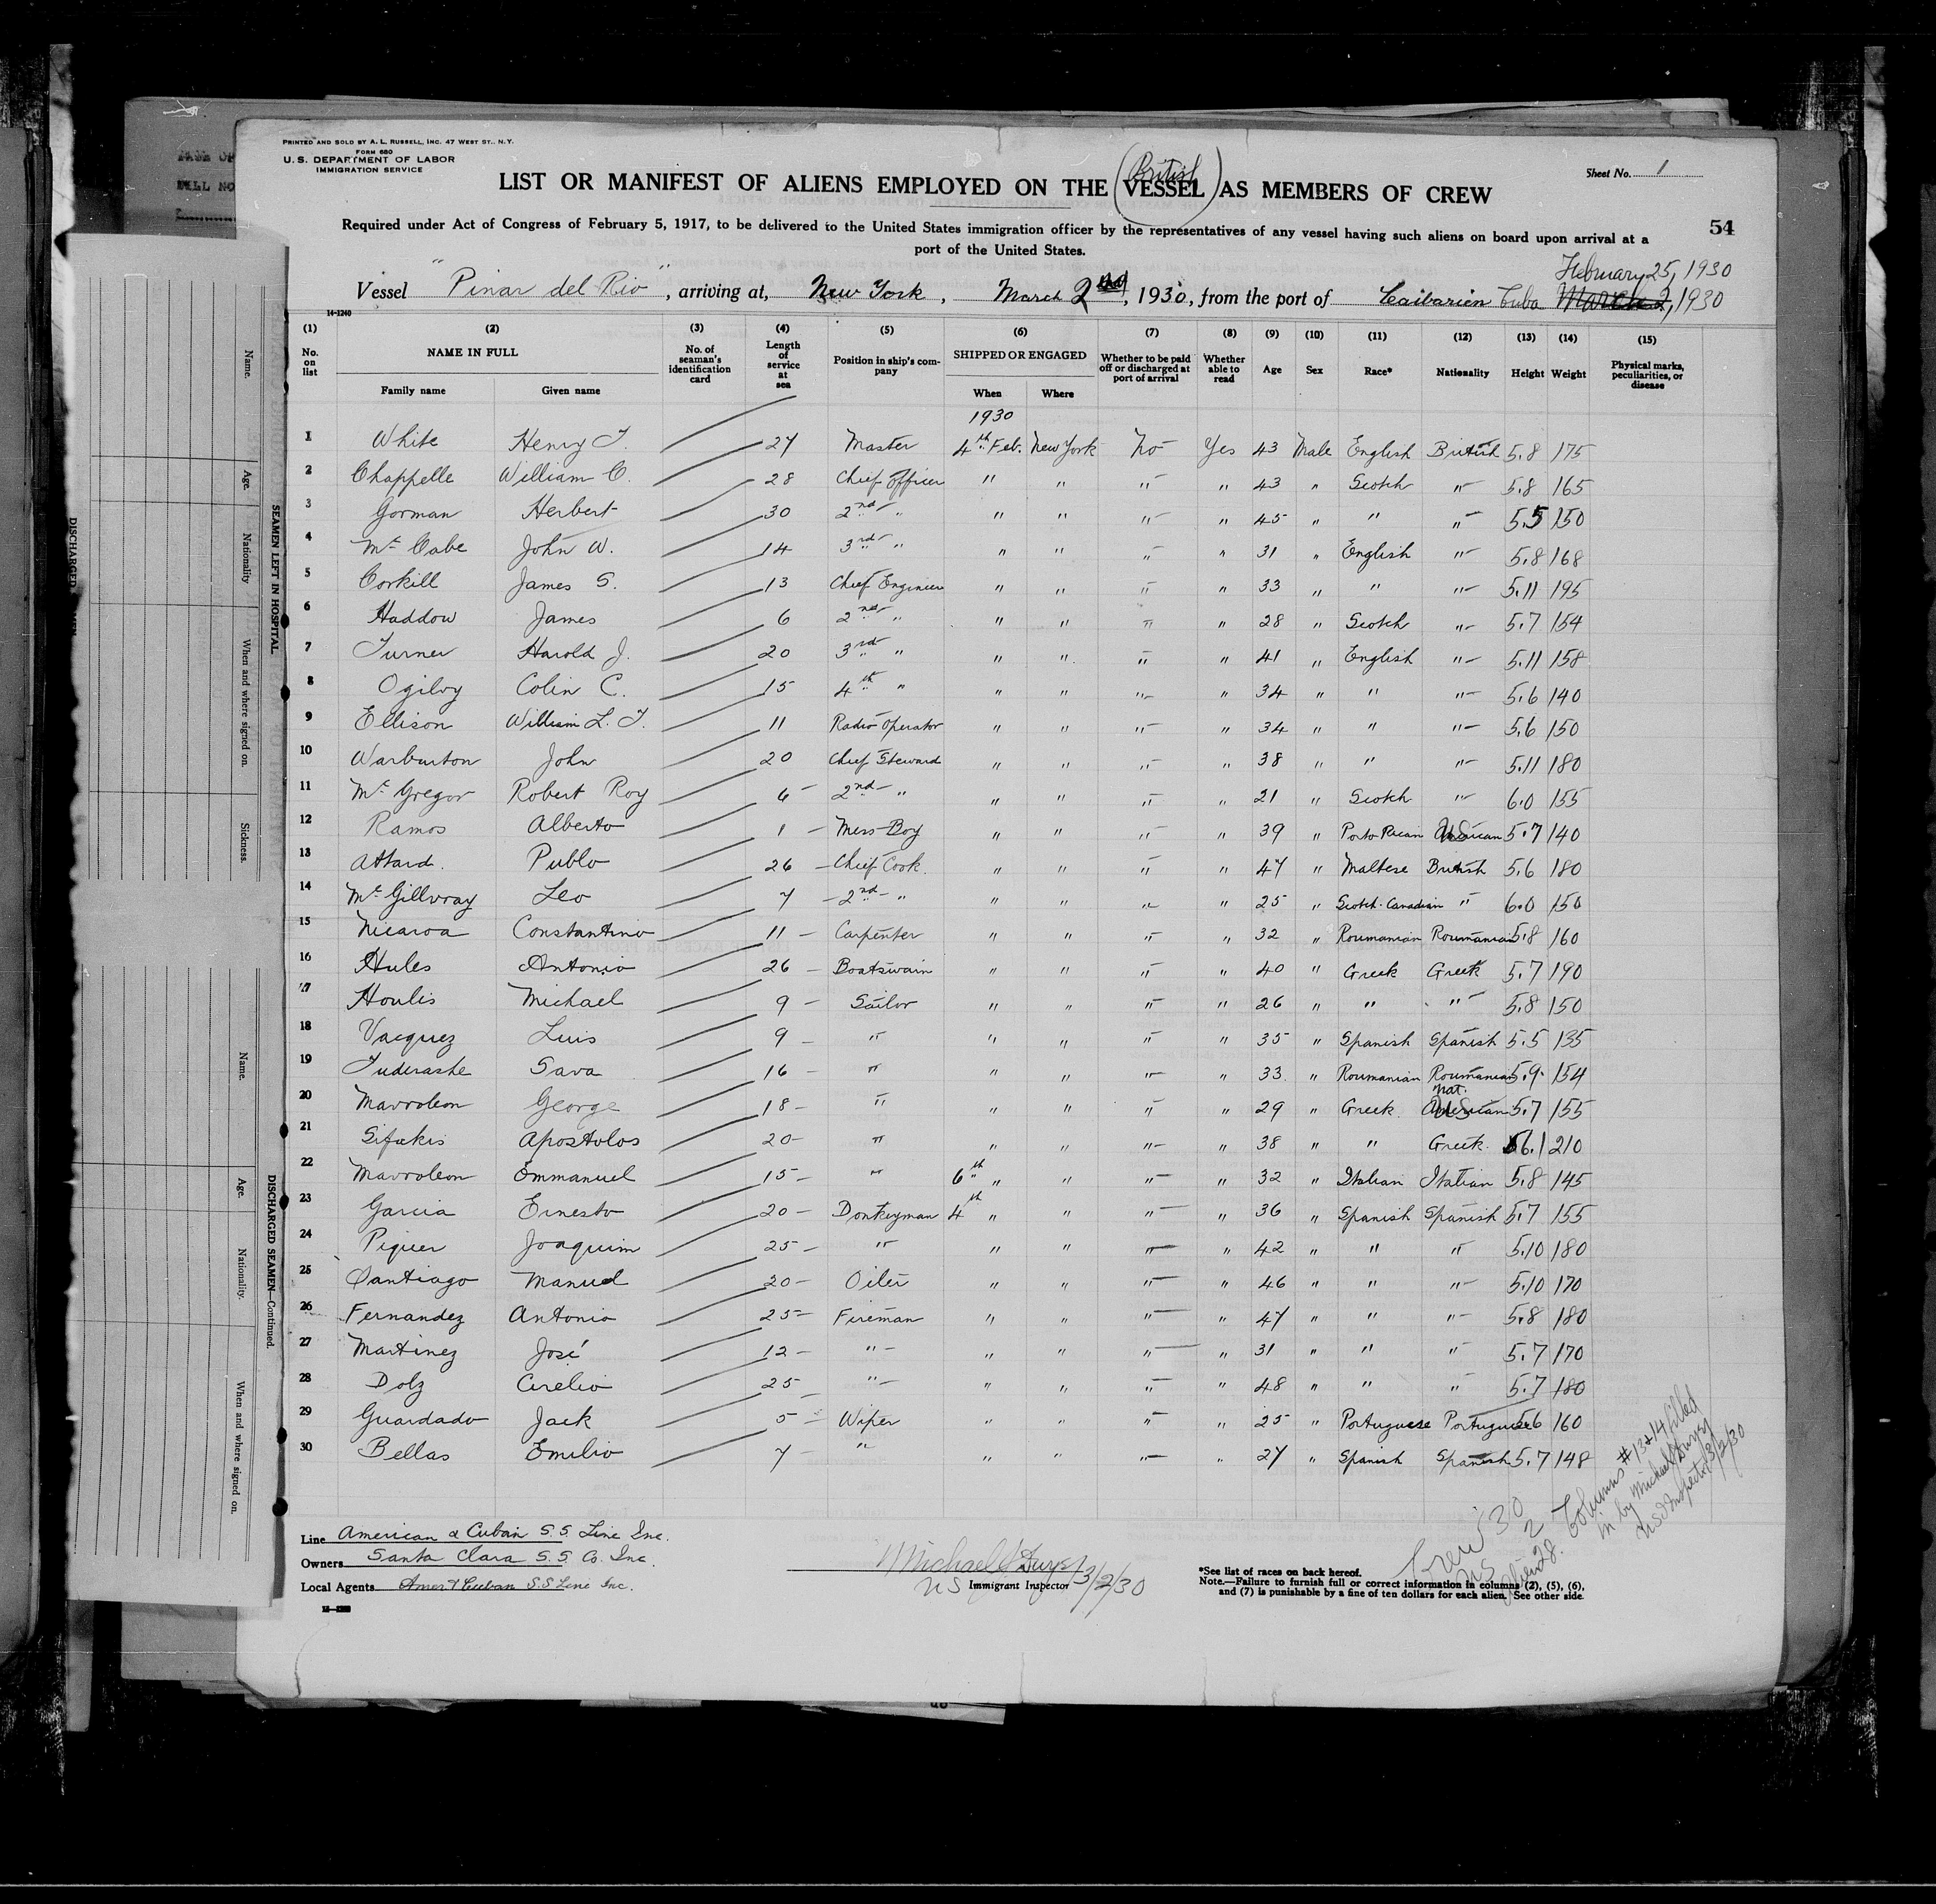 PRINTED AND SOLD BY A. L. RUSSELL, INC. 47 WEST ST., N.Y.
FORM 680
U. S. DEPARTMENT OF LABOR
IMMIGRATION SERVICE
Sheet No. 1
British
LIST OR MANIFEST OF ALIENS EMPLOYED ON THE (VESSEL) AS MEMBERS OF CREW
54
Required under Act of Congress of February 5, 1917, to be delivered to the United States immigration officer by the representatives of any vessel having such aliens on board upon arrival at a
port of the United States.
February 25, 1930
Vessel "Pinar del Rio", arriving at, New York, March 2nd, 1930, from the port of Caibarien Cuba March 2, 1930
14-1240
(1) (2) (3) (4) (5) (6) (7) (8) (9) (10) (11) (12) (13) (14) (15)
No. on list NAME IN FULL Family name Given name No. of seaman's identification card Length of service at sea Position in ship's company SHIPPED OR ENGAGED When Where Whether to be paid off or discharged at port of arrival Whether able to read Age Sex Race* Nationality Height Weight Physical marks, peculiarities, or disease
1930
1 White Henry T. 27 Master 4th Feb. New York No Yes 43 Male English British 5.8 175
2 Chappelle William C. 28 Chief Officer " " " " 43 " Scotch " 5.8 165
3 Gorman Herbert 30 2nd " " " " " 45 " " " 5.5 150
4 McCabe John W. 14 3rd " " " " " 31 " English " 5.8 168
5 Corkill James S. 13 Chief Engineer " " " " 33 " " " 5.11 195
6 Haddow James 6 2nd " " " " " 28 " Scotch " 5.7 154
7 Turner Harold J. 20 3rd " " " " " 41 " English " 5.11 158
8 Ogilvy Colin C. 15 4th " " " " " 34 " " " 5.6 140
9 Ellison William L. T. 11 Radio Operator " " " " 34 " " " 5.6 150
10 Warburton John 20 Chief Steward " " " " 38 " " " 5.11 180
11 McGregor Robert Roy 6 2nd " " " " " 21 " Scotch " 6.0 155
12 Ramos Alberto 1 Mess-Boy " " " " 39 " Porto Rican US 5.7 140
13 Attard Publo 26 Chief Cook " " " " 47 " Maltese British 5.6 180
14 McGillvray Leo 7 2nd " " " " " 25 " Scotch-Canadian " 6.0 150
15 Nicaroa Constantino 11 Carpenter " " " " 32 " Roumanian Roumanian 5.8 160
16 Hules Antonio 26 Boatswain " " " " 40 " Greek Greek 5.7 190
17 Houlis Michael 9 Sailor " " " " 26 " " " 5.8 150
18 Vacquez Luis 9 " " " " " 35 " Spanish Spanish 5.5 135
19 Tuderashe Sava 16 " " " " " 33 " Roumanian Roumanian 5.9 154
20 Mavroleon George 18 " " " " " 29 " Greek Nat. US American 5.7 155
21 Sifakis Apostolos 20 " " " " " 38 " " Greek 6.1 210
22 Mavroleon Emmanuel 15 " 6th " " " " 32 " Italian Italian 5.8 145
23 Garcia Ernesto 20 Donkeyman 4th " " " " 36 " Spanish Spanish 5.7 155
24 Piquer Joaquim 25 " " " " " 42 " " " 5.10 180
25 Santiago Manuel 20 Oiler " " " " 46 " " " 5.10 170
26 Fernandez Antonio 25 Fireman " " " " 47 " " " 5.8 180
27 Martinez José 12 " " " " " 31 " " " 5.7 170
28 Dolz Cirelio 25 " " " " " 48 " " " 5.7 180
29 Guardado Jack 5 Wiper " " " " 25 " Portuguese Portuguese 5.6 160
30 Bellas Emilio 7 " " " " " 27 " Spanish Spanish 5.7 148
Columns #13&14 filled
in by Michael
US Inspector 3/2/30
Crew 30
US 2
Alien 28.
Line American & Cuban S.S. Line Inc.
Owners Santa Clara S.S. Co. Inc.
Local Agents Amer & Cuban S.S Line Inc.
Michael
US Immigrant Inspector 3/2/30
*See list of races on back hereof.
Note.—Failure to furnish full or correct information in columns (2), (5), (6),
and (7) is punishable by a fine of ten dollars for each alien. See other side.
SEAMEN LEFT IN HOSPITAL
Name.
Age.
Nationality
When and where signed on.
Sickness.
DISCHARGED SEAMEN—Continued.
Name.
Age.
Nationality.
When and where signed on.